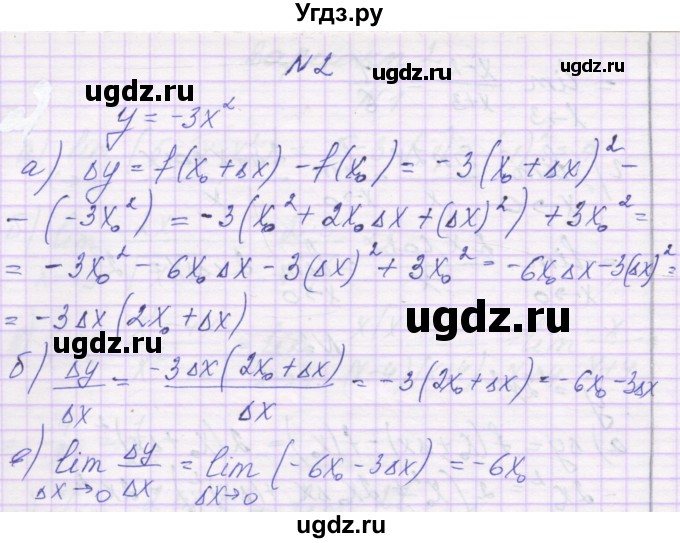 Угдз.ру
N 2
ugdz.ru ugdz.ru
y = -3x²
а) Δy = f(x₀ + Δx) - f(x₀) = -3(x₀ + Δx)² -
- (-3x₀²) = -3(x₀² + 2x₀Δx + (Δx)²) + 3x₀² =
= -3x₀² - 6x₀Δx - 3(Δx)² + 3x₀² = -6x₀Δx - 3(Δx)² =
= -3Δx(2x₀ + Δx)
ugdz.ru
ugdz.ru
б) Δy/Δx = -3Δx(2x₀ + Δx)/Δx = -3(2x₀ + Δx) = -6x₀ - 3Δx
в) lim Δx→0 Δy/Δx = lim Δx→0 (-6x₀ - 3Δx) = -6x₀
ugdz.ru